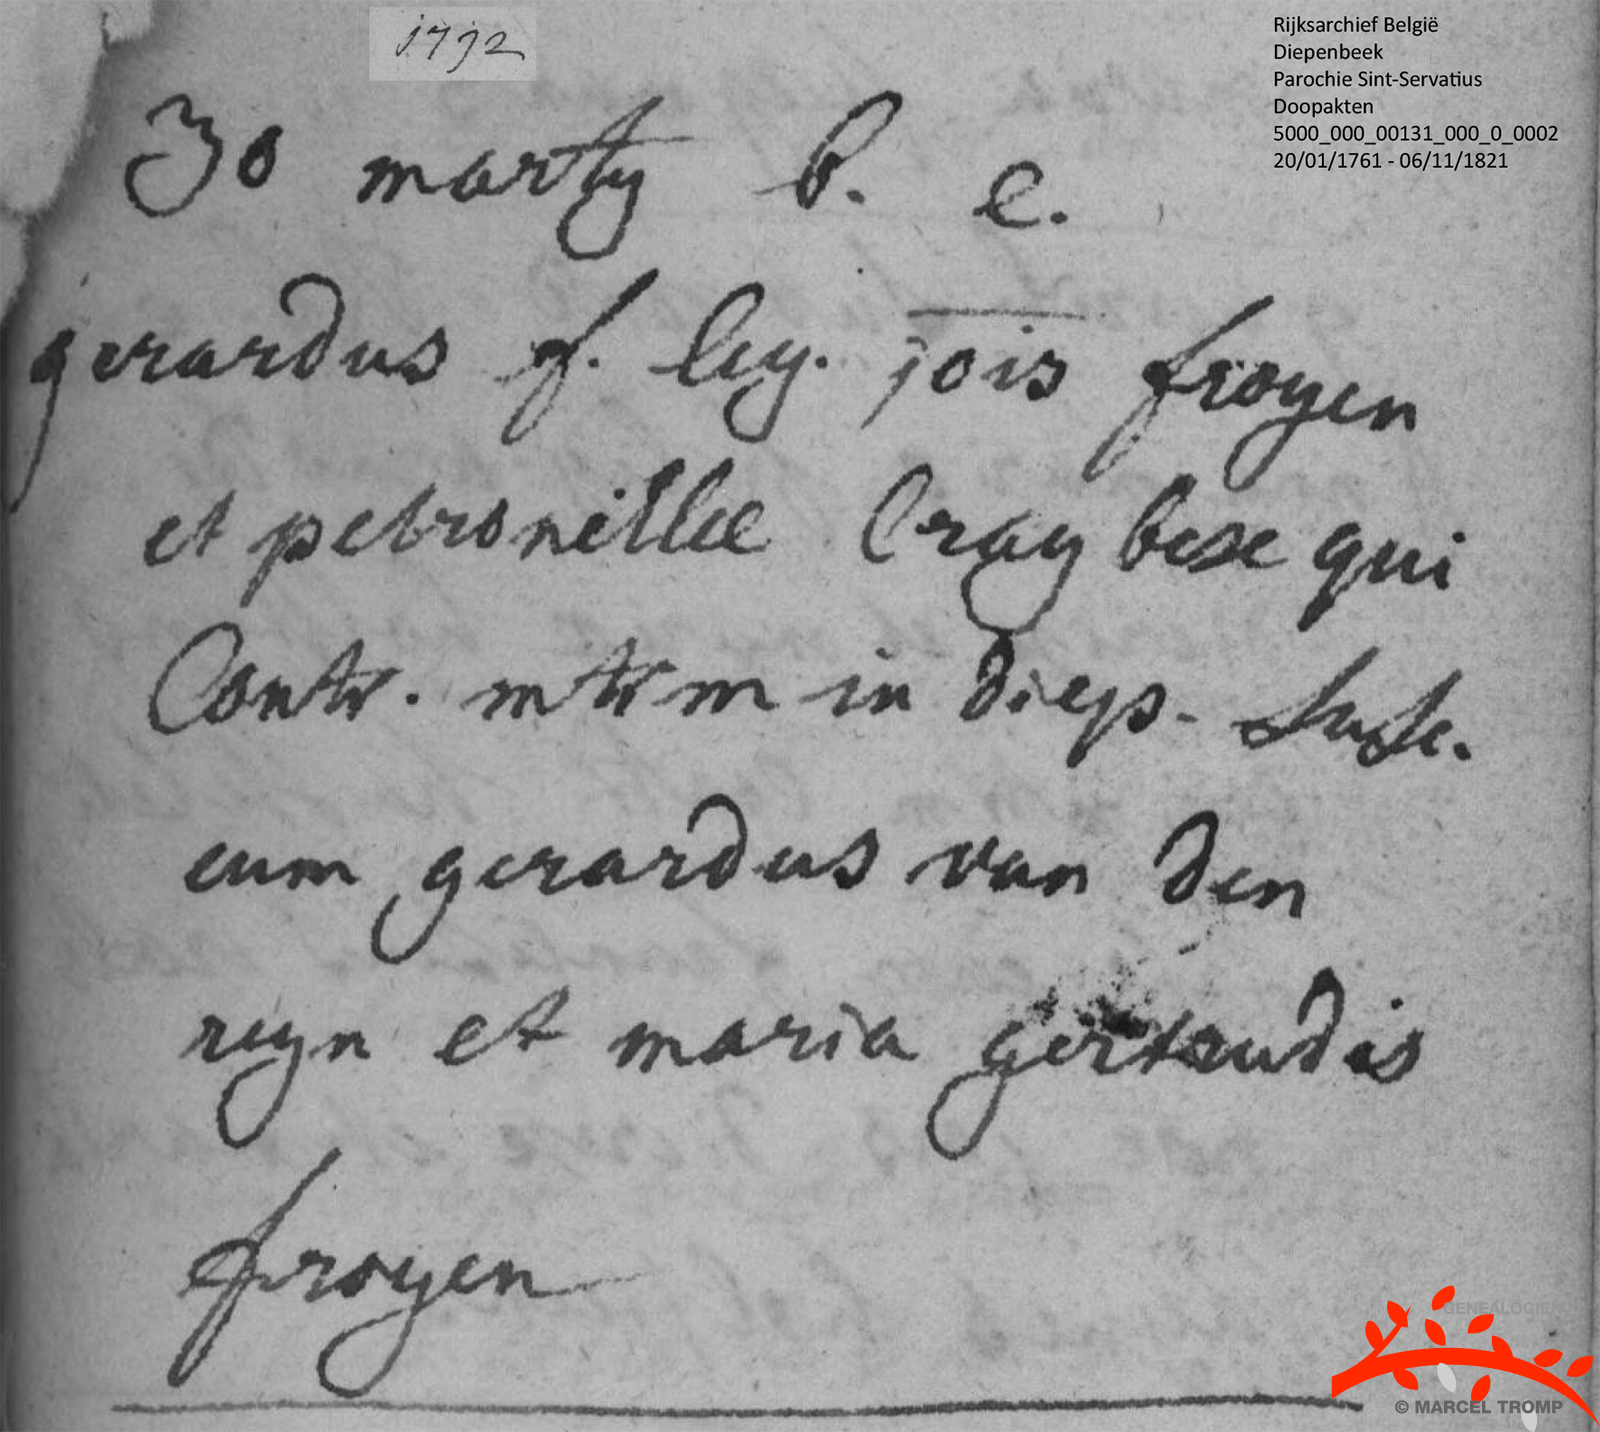 1792
Rijksarchief België
Diepenbeek
Parochie Sint-Servatius
Doopakten
5000_000_00131_000_0_0002
20/01/1761 - 06/11/1821
30 marty b. e.
gerardus f. leg. jois froyen
et petronillae Craybexe qui
Contr. mtrm in diep. Susc.
eum gerardus van den
reyn et maria gertrudis
froyen
GENEALOGIE
© MARCEL TROMP